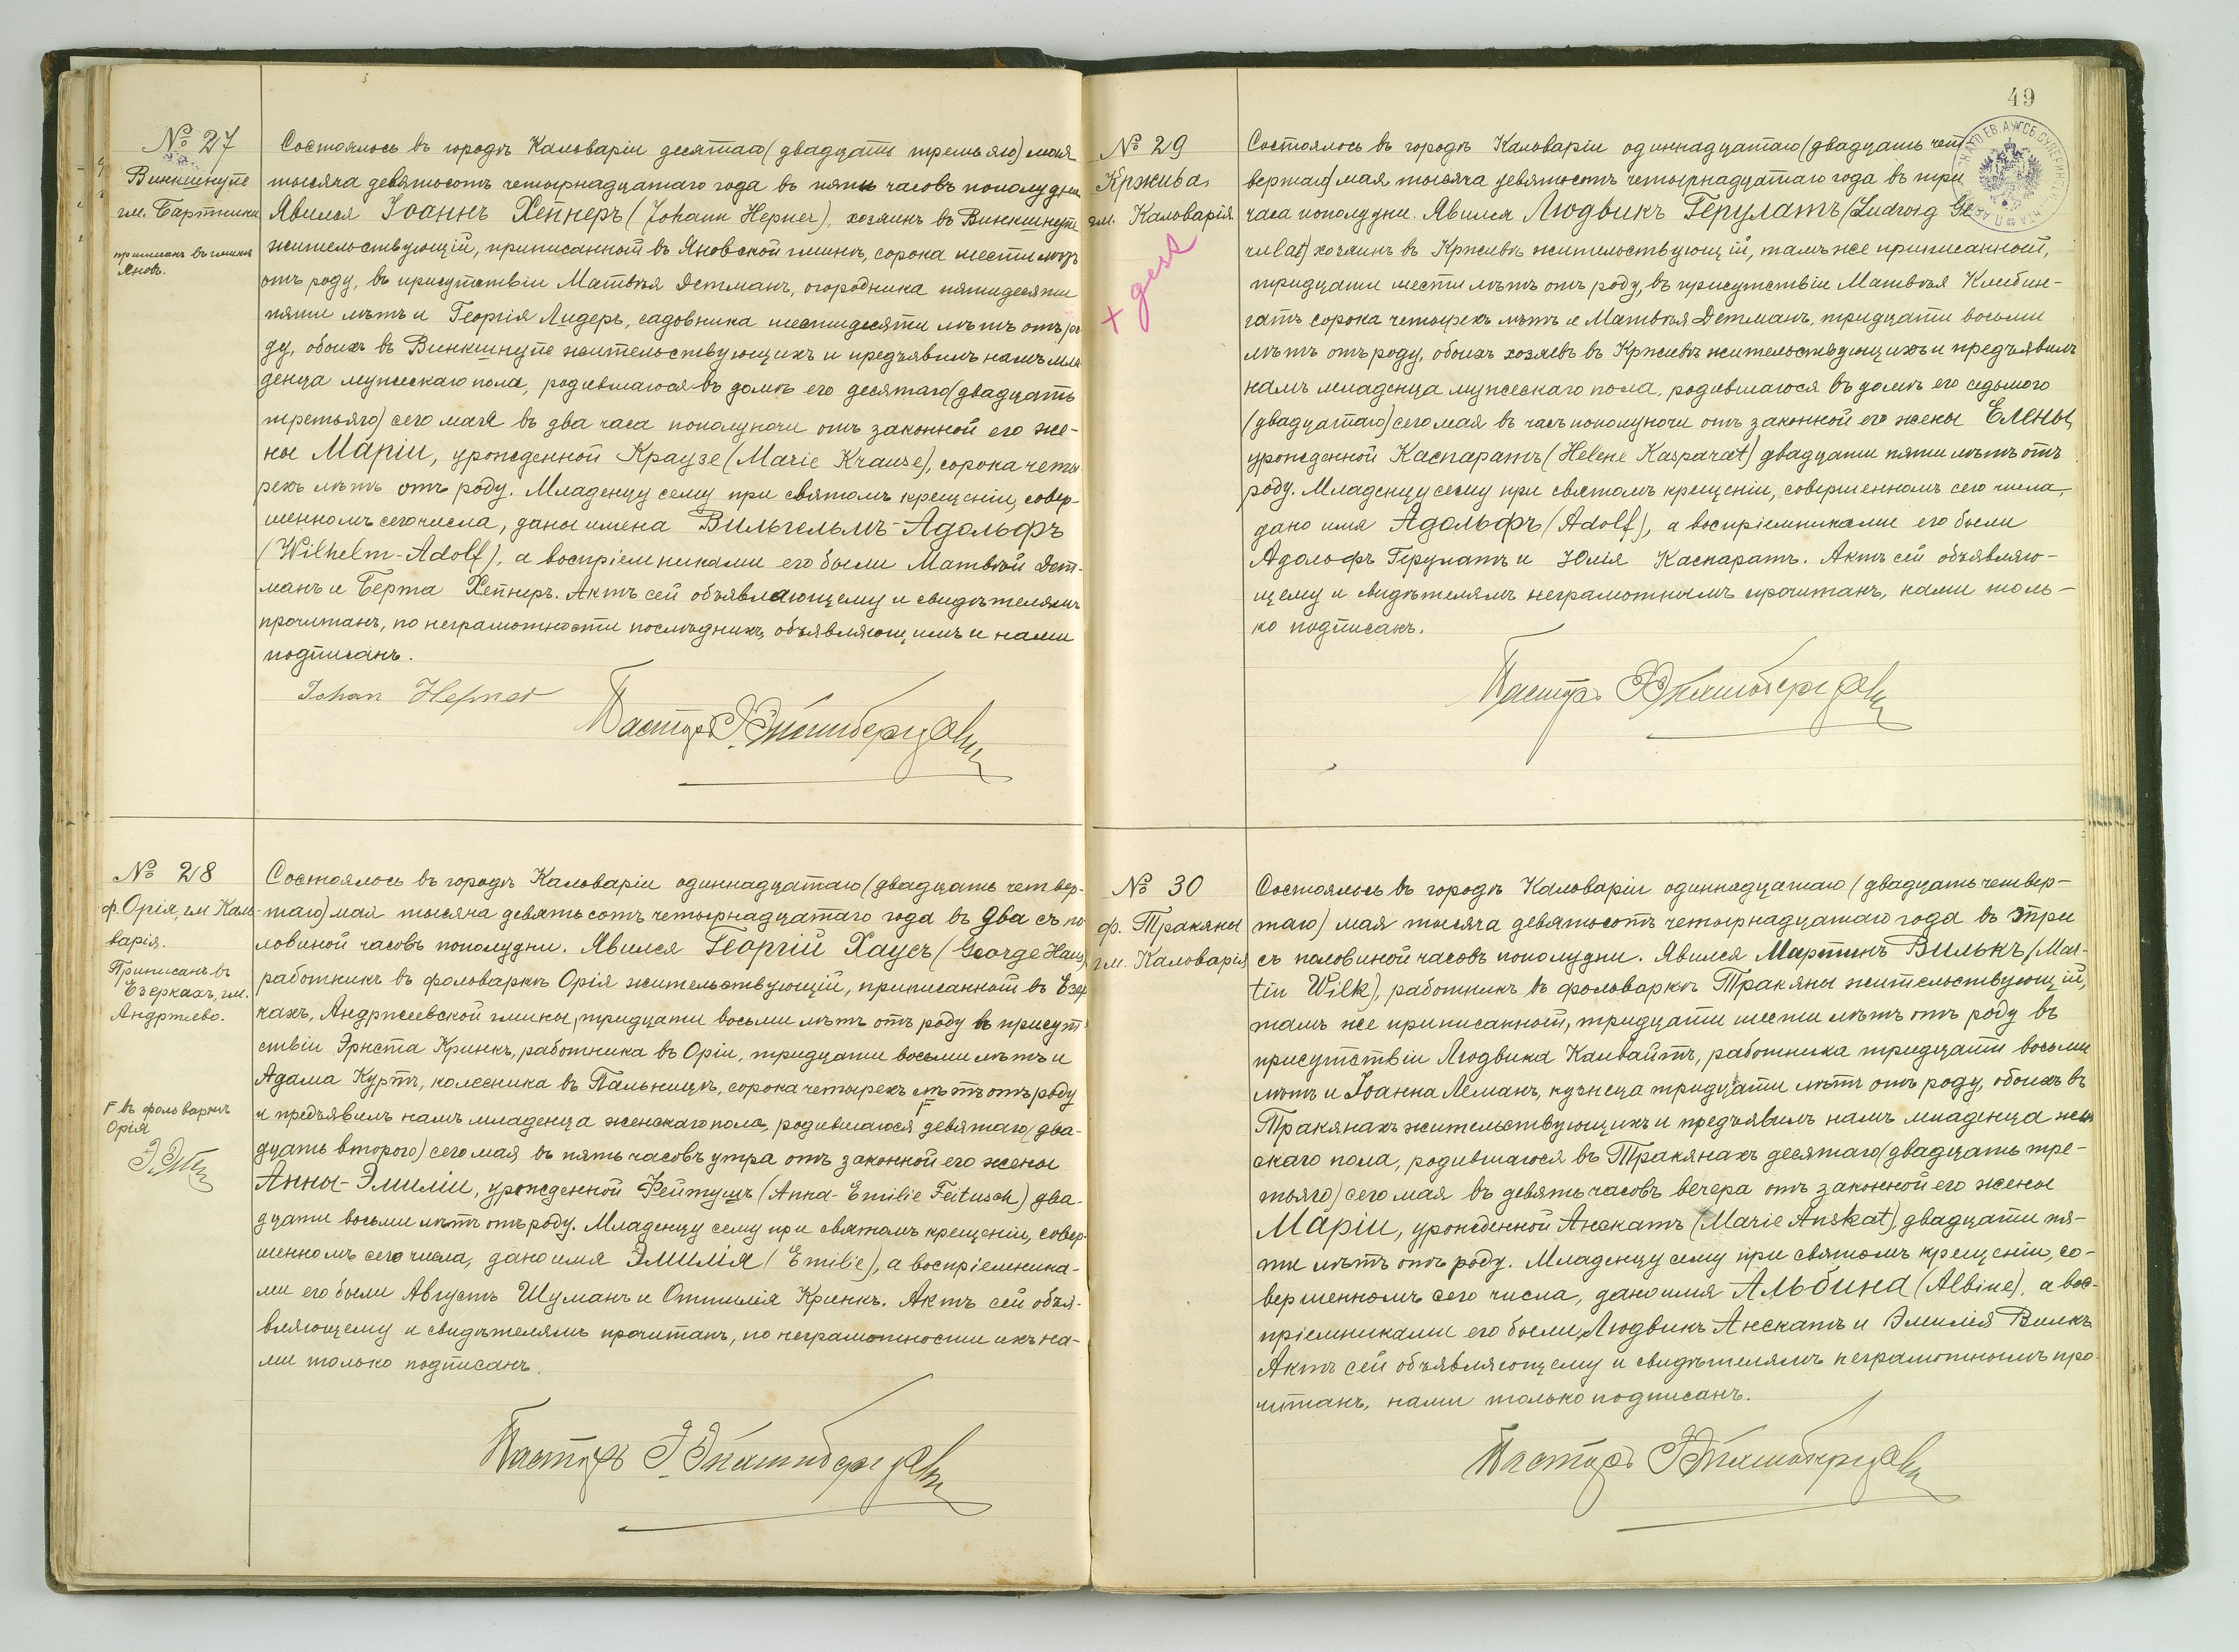 № 27
Винкшнупе
гм. Бартники
приписанъ въ гминѣ
Яновъ.
Состоялось въ городѣ Кальваріи десятаго (двадцать третьяго) мая
тысяча девятьсотъ четырнадцатаго года въ пять часовъ пополудни
Явился Іоаннъ Хепнеръ (Johann Hepner), хозяинъ въ Винкшнупе
жительствующій, приписанный въ Яновской гминѣ, сорока шести лѣтъ
отъ роду, въ присутствіи Матвѣя Детманъ, огородника пятидесяти
пяти лѣтъ и Георгія Лидеръ, садовника шестидесяти лѣтъ отъ ро-
ду, обоихъ въ Винкшнупе жительствующихъ и предъявилъ намъ мла
денца мужескаго пола, родившагося въ домѣ его десятаго (двадцать
третьяго) сего мая въ два часа пополуночи отъ законной его же-
ны Маріи, урожденной Краузе (Marie Krause), сорока четы
рехъ лѣтъ отъ роду. Младенцу сему при святомъ крещеніи, совер-
шенномъ сего числа, даны имена Вильгельмъ-Адольфъ
(Wilhelm-Adolf), а воспріемниками его были Матвѣй Дет-
манъ и Берта Хепнеръ. Актъ сей объявляющему и свидѣтелямъ
прочитанъ, по неграмотности послѣднихъ, объявляющимъ и нами
подписанъ.
Johan Hepner
Пасторъ
№ 28
ф. Орія, гм. Каль-
варія.
Приписанъ въ
Езеркахъ, гм.
Андржево.
Г въ фольваркѣ
Орія
Состоялось въ городѣ Кальваріи одиннадцатаго (двадцать четвер-
таго) мая тысяча девятьсотъ четырнадцатаго года въ два съ по
ловиной часовъ пополудни. Явился Георгій Хаусъ (George Haus)
работникъ въ фольваркѣ Орія жительствующій, приписанный въ Езер
кахъ, Андржеевской гмины, тридцати восьми лѣтъ отъ роду въ присут
ствіи Эрнста Кринкъ, работника въ Оріи, тридцати восьми лѣтъ и
Адама Куртъ, колесника въ Пальницѣ, сорока четырехъ лѣтъ отъ роду
и предъявилъ намъ младенца женскаго пола, родившагося Г девятаго (два-
дцать второго) сего мая въ пять часовъ утра отъ законной его жены
Анны-Эмиліи, урожденной Фейтушъ (Anna-Emilie Feitusch) два-
дцати восьми лѣтъ отъ роду. Младенцу сему при святомъ крещеніи, совер-
шенномъ сего числа, дано имя Эмилія (Emilie), а воспріемника-
ми его были Августъ Шуманъ и Оттилія Кринкъ. Актъ сей объя-
вляющему и свидѣтелямъ прочитанъ, по неграмотности ихъ на-
ми только подписанъ.
Пасторъ
49
№ 29
Кржива
гм. Кальварія
Состоялось въ городѣ Кальваріи одиннадцатаго (двадцать чет
вертаго) мая тысяча девятьсотъ четырнадцатаго года въ три
часа пополудни. Явился Людвикъ Герулатъ (Ludwig Ge
rulat) хозяинъ въ Крживѣ жительствующій, тамъ же приписанный,
тридцати шести лѣтъ отъ роду, въ присутствіи Матвѣя Клибин-
гатъ сорока четырехъ лѣтъ и Матвѣя Детманъ, тридцати восьми
лѣтъ отъ роду, обоихъ хозяевъ въ Крживѣ жительствующихъ и предъявилъ
намъ младенца мужескаго пола, родившагося въ домѣ его седьмого
(двадцатаго) сего мая въ часъ пополуночи отъ законной его жены Елены,
урожденной Каспаратъ (Helene Kasparat) двадцати пяти лѣтъ отъ
роду. Младенцу сему при святомъ крещеніи, совершенномъ сего числа,
дано имя Адольфъ (Adolf), а воспріемниками его были
Адольфъ Герулатъ и Юлія Каспаратъ. Актъ сей объявляю-
щему и свидѣтелямъ неграмотнымъ прочитанъ, нами толь-
ко подписанъ.
Пасторъ
№ 30
ф. Тракяны
гм. Кальварія
Состоялось въ городѣ Кальваріи одиннадцатаго (двадцать четвер-
таго) мая тысяча девятьсотъ четырнадцатаго года въ три
съ половиной часовъ пополудни. Явился Мартинъ Вилькъ (Mar-
tin Wilk), работникъ въ фольваркѣ Тракяны жительствующій,
тамъ же приписанный, тридцати шести лѣтъ отъ роду въ
присутствіи Людвика Канвайтъ, работника тридцати восьми
лѣтъ и Іоанна Леманъ, кузнеца тридцати лѣтъ отъ роду, обоихъ въ
Тракянахъ жительствующихъ и предъявилъ намъ младенца жен
скаго пола, родившагося въ Тракянахъ десятаго (двадцать тре-
тьяго) сего мая въ девять часовъ вечера отъ законной его жены
Маріи, урожденной Анскатъ (Marie Anskat), двадцати пя-
ти лѣтъ отъ роду. Младенцу сему при святомъ крещеніи, со-
вершенномъ сего числа, дано имя Альбина (Albine), а вос-
пріемниками его были Людвикъ Анскатъ и Эмилія Вилкъ
Актъ сей объявляющему и свидѣтелямъ неграмотнымъ про
читанъ, нами только подписанъ.
Пасторъ